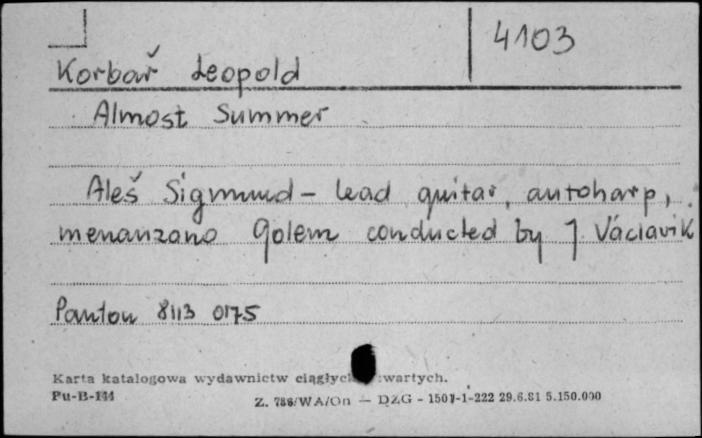 4103
Korbař Leopold
Almost Summer
Aleš Sigmund - lead guitar, autoharp,
menanzano Golem conducted by J. Václavik
Panton 8113 0175
Karta katalogowa wydawnictw ciągłych wartych.
Pu-B-144
Z. 786/WA/On — DZG - 1501-1-222 29.6.81 5.150.000